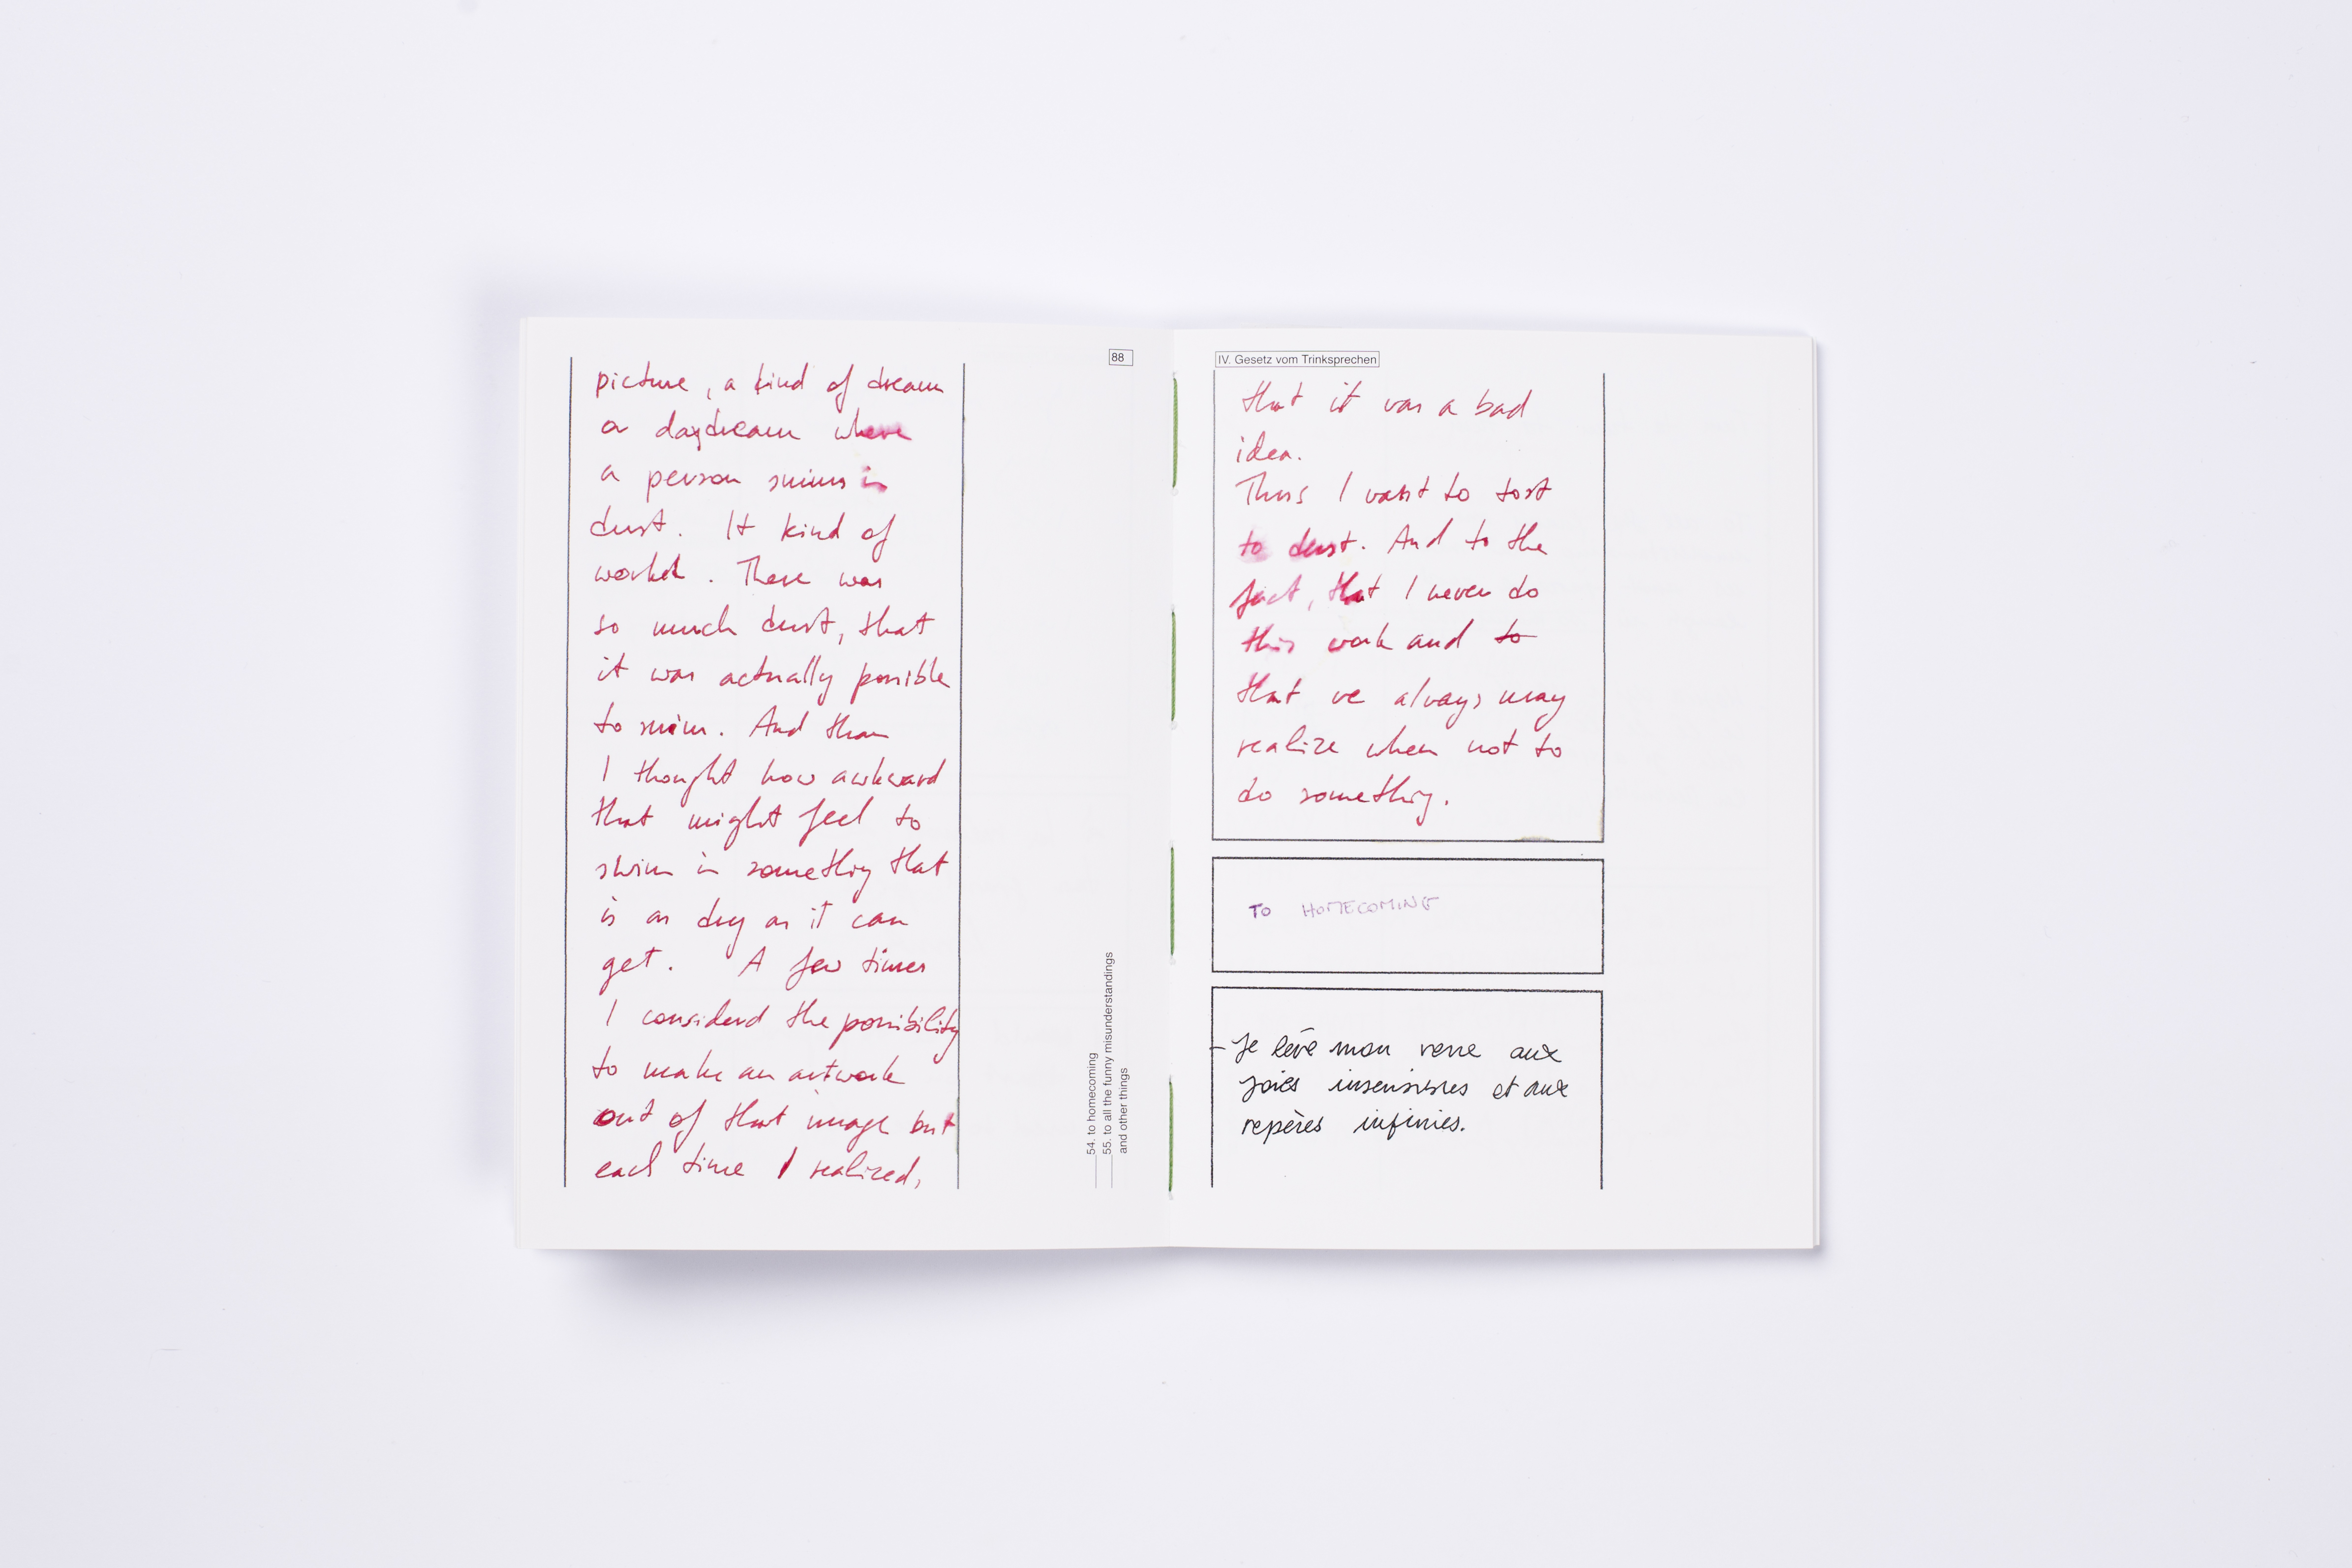 picture, a kind of dream
a daydream where
a person swims in
dust. It kind of
worked. There was
so much dust, that
it was actually possible
to swim. And than
I thought how awkward
that might feel to
swim in something that
is as dry as it can
get. A few times
I considerd the possibility
to make an artwork
out of that image but
each time I realized,
88
54. to homecoming
55. to all the funny misunderstandings
and other things
IV. Gesetz vom Trinksprechen
that it was a bad
idea.
Thus I want to tost
to dust. And to the
fact, that I never do
this work and to
that we always may
realize when not to
do something.
TO HOMECOMING
- Je lève mon verre aux
joies insensibles et aux
repères infinies.